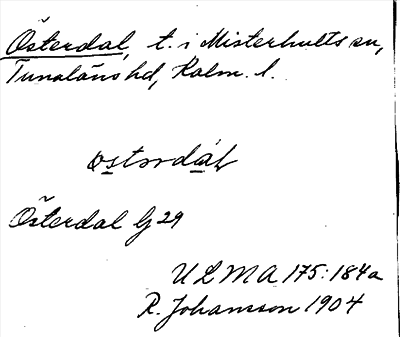 Österdal, t. i Misterhults sn,
Tunaläns hd, Kalm. l.
Österdal G 29
ULMA 175:184a
R. Johansson 1904